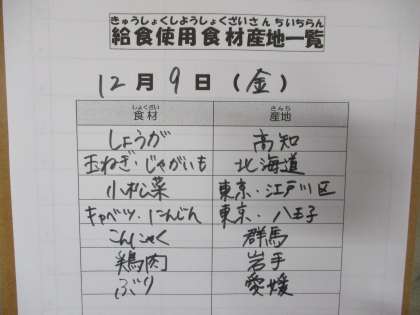 きゅうしょくしようしょくざいさんちいちらん
給食使用食材産地一覧
12月9日(金)
しょくざい さんち
食材 産地
しょうが 高知
玉ねぎ・じゃがいも 北海道
小松菜 東京・江戸川区
キャベツ・にんじん 東京・八王子
こんにゃく 群馬
鶏肉 岩手
ぶり 愛媛